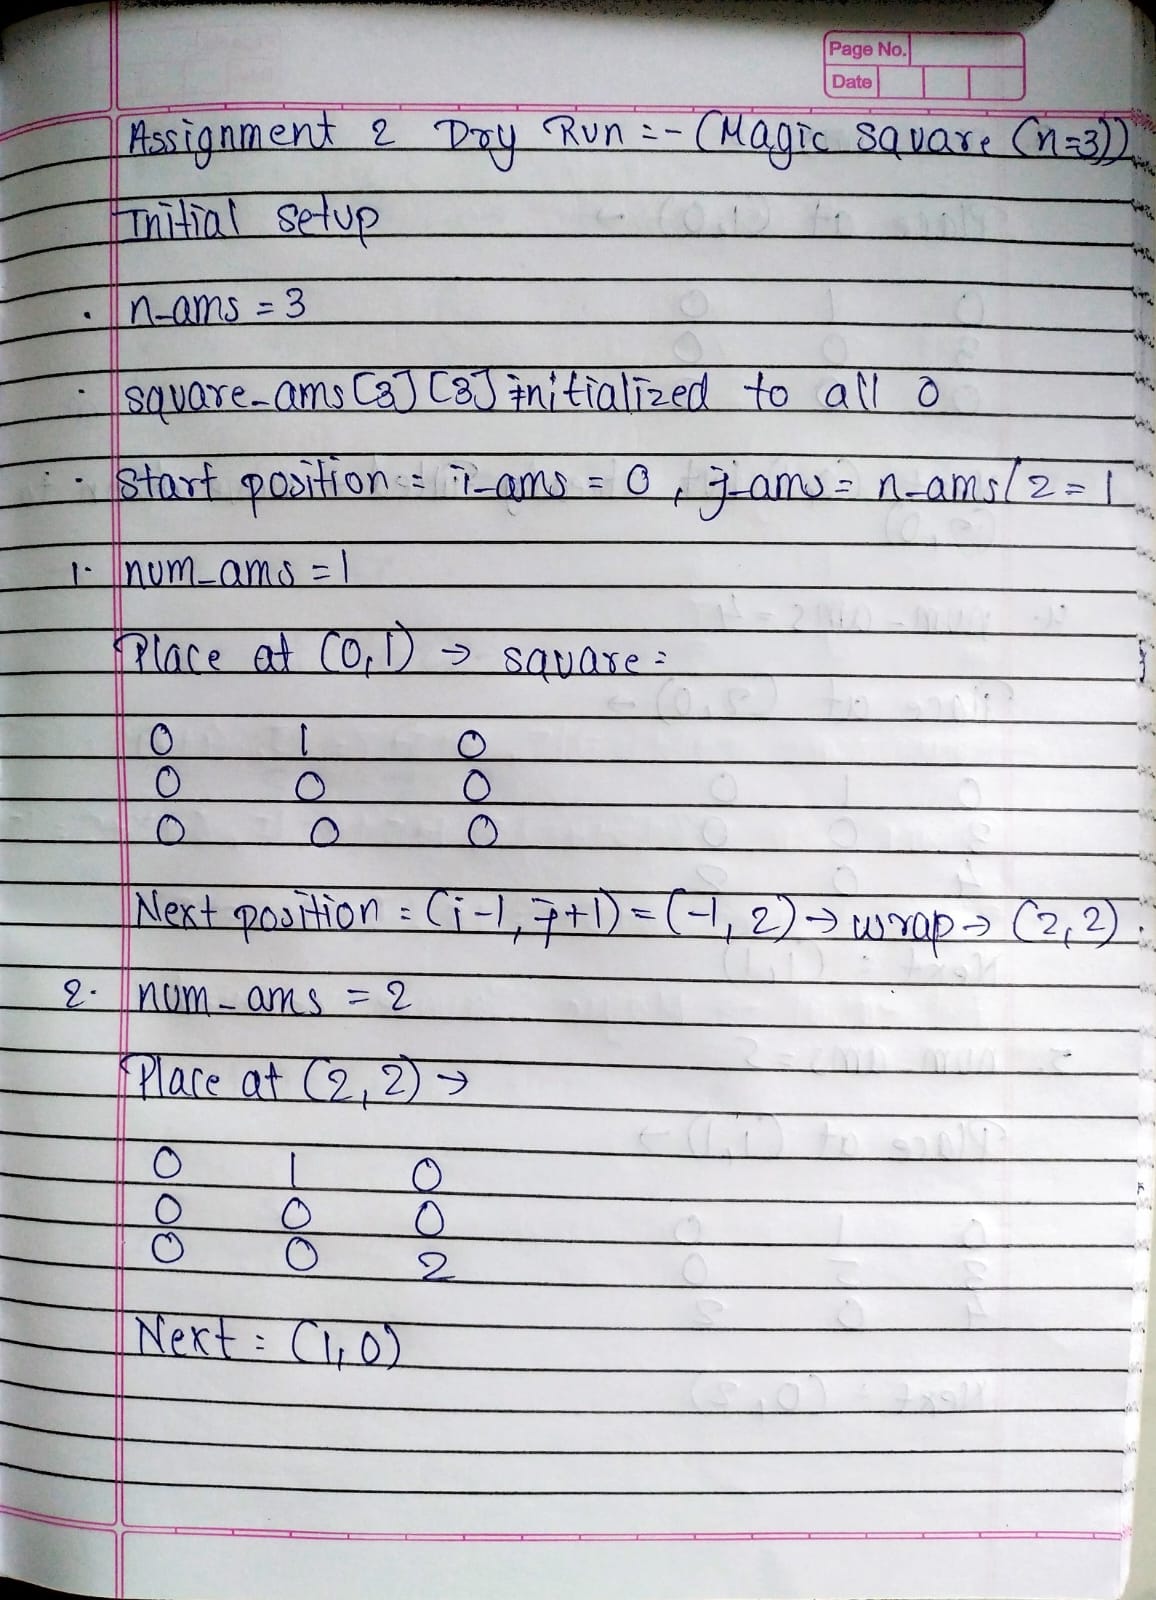 Page No.
Date
Assignment 2 Dry Run :- (Magic square (n=3))
Initial setup
. n_ams = 3
. square_ams [3] [3] initialized to all 0
. Start position := i_ams = 0, j_ams = n_ams/2 = 1
1. num_ams = 1
Place at (0,1) → square =
0 1 0
0 0 0
0 0 0
Next position = (i-1, j+1) = (-1, 2) → wrap → (2,2).
2. num_ams = 2
Place at (2,2) →
0 1 0
0 0 0
0 0 2
Next = (1,0)